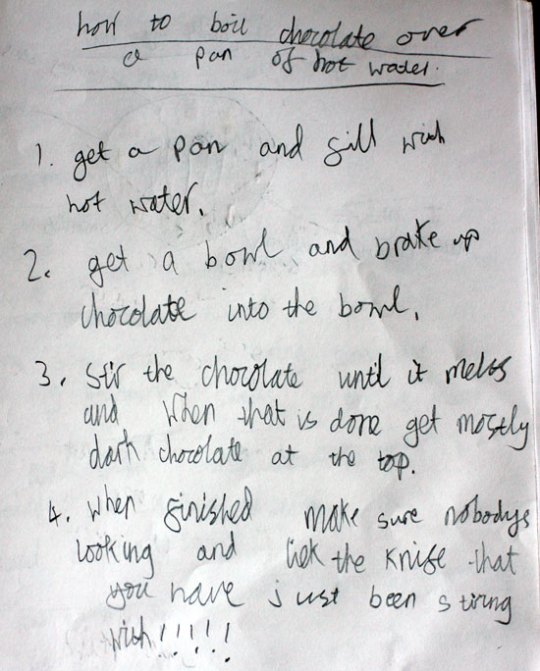 how to boil chocolate over
a pan of hot water.
1. get a pan and fill with
hot water.
2. get a bowl and brake up
chocolate into the bowl.
3. Stir the chocolate until it melts
and when that is done get mostly
dark chocolate at the top.
4. when finished make sure nobodys
looking and lick the knife that
you have just been stiring
with!!!!!